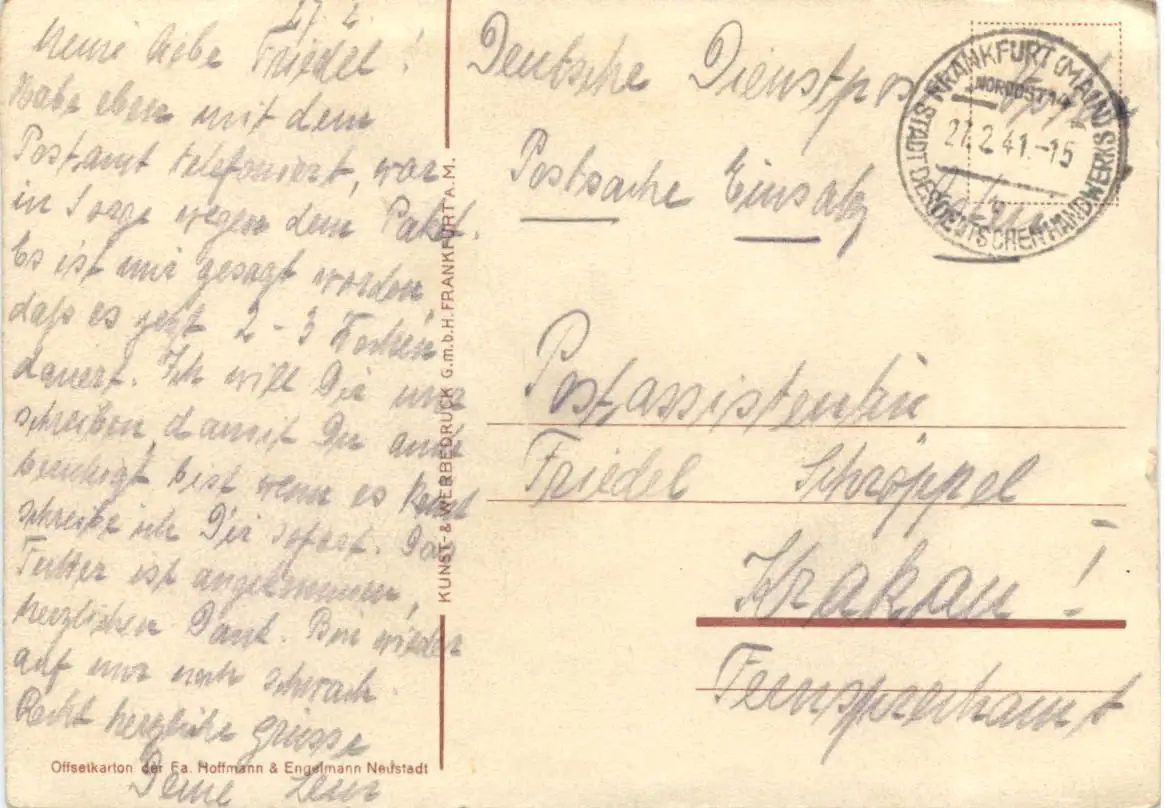 27.2
Meine liebe Friedel!
Habe eben mit dem
Postamt telefoniert, war
in Sorge wegen dem Paket.
Es ist mir gesagt worden,
daß es jetzt 2-3 Wochen
dauert. Ich will Dir nur
schreiben damit Du
beruhigt bist wenn es
schreibe ich Dir sofort. Das
Futter ist angekommen,
herzlichen Dank. Bin wieder
auf nur noch schwach.
Recht herzliche Grüsse
Deine
Offsetkarton der Fa. Hoffmann & Engelmann Neustadt
KUNST- & WERBEDRUCK G.m.b.H. FRANKFURT A. M.
Deutsche Dienstpost
Postsache Einsatz
FRANKFURT (MAIN)
27.2.41.-15
STADT DES DEUTSCHEN HANDWERKS
Postassistentin
Friedel Schröppel
Krakau!
Fernsprechamt